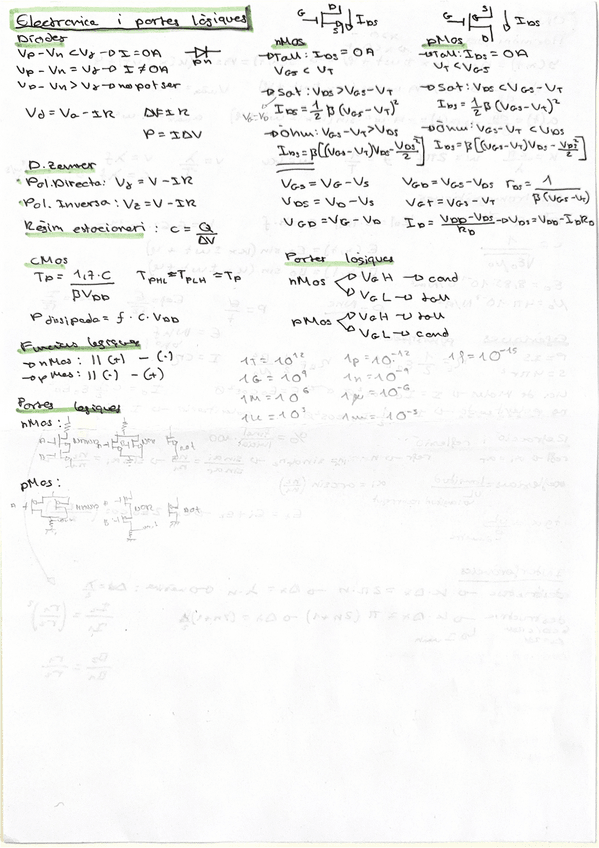 Electronica i portes lògiques
Díodes
Vp - Vn < Vγ → I = 0A
pn
Vp - Vn = Vγ → I ≠ 0A
Vp - Vn > Vγ → no pot ser
Vd = Va - IR ΔV = IR
P = IΔV
D. Zenner
Pol. Directa: Vγ = V - IR
Pol. Inversa: Vz = V - IR
Règim estacionari: C = Q/ΔV
CMos
Tp = 1,7·C / βVDD TPHL ≈ TPLH ≈ Tp
P dissipada = f · C · VDD
Funcions lògiques
→ nMos: || (+) — (·)
→ pMos: || (·) — (+)
Portes lògiques
nMos:
pMos:
G D S IDS
nMos
→ Tall: IDS = 0A
VGS < VT
→ Sat: VDS > VGS - VT
IDS = 1/2 β (VGS - VT)²
→ Ohm: VGS - VT > VDS
IDS = β[(VGS - VT)VDS - VDS²/2]
VGS = VG - VS
VDS = VD - VS
VGD = VG - VD
G S D IDS
pMos
→ Tall: IDS = 0A
VT < VGS
→ Sat: VDS < VGS - VT
IDS = 1/2 β (VGS - VT)²
→ Ohm: VGS - VT < VDS
IDS = β[(VGS - VT)VDS - VDS²/2]
VGD = VGS - VDS rDS = 1 / β(VGS - VT)
VGT = VGS - VT
ID = VDD - VDS / RD → VDS = VDD - IDRD
Portes lògiques
nMos VGH → cond
VGL → tall
pMos VGH → tall
VGL → cond
1T = 10¹² 1p = 10⁻¹² 1f = 10⁻¹⁵
1G = 10⁹ 1n = 10⁻⁹
1M = 10⁶ 1μ = 10⁻⁶
1K = 10³ 1m = 10⁻³